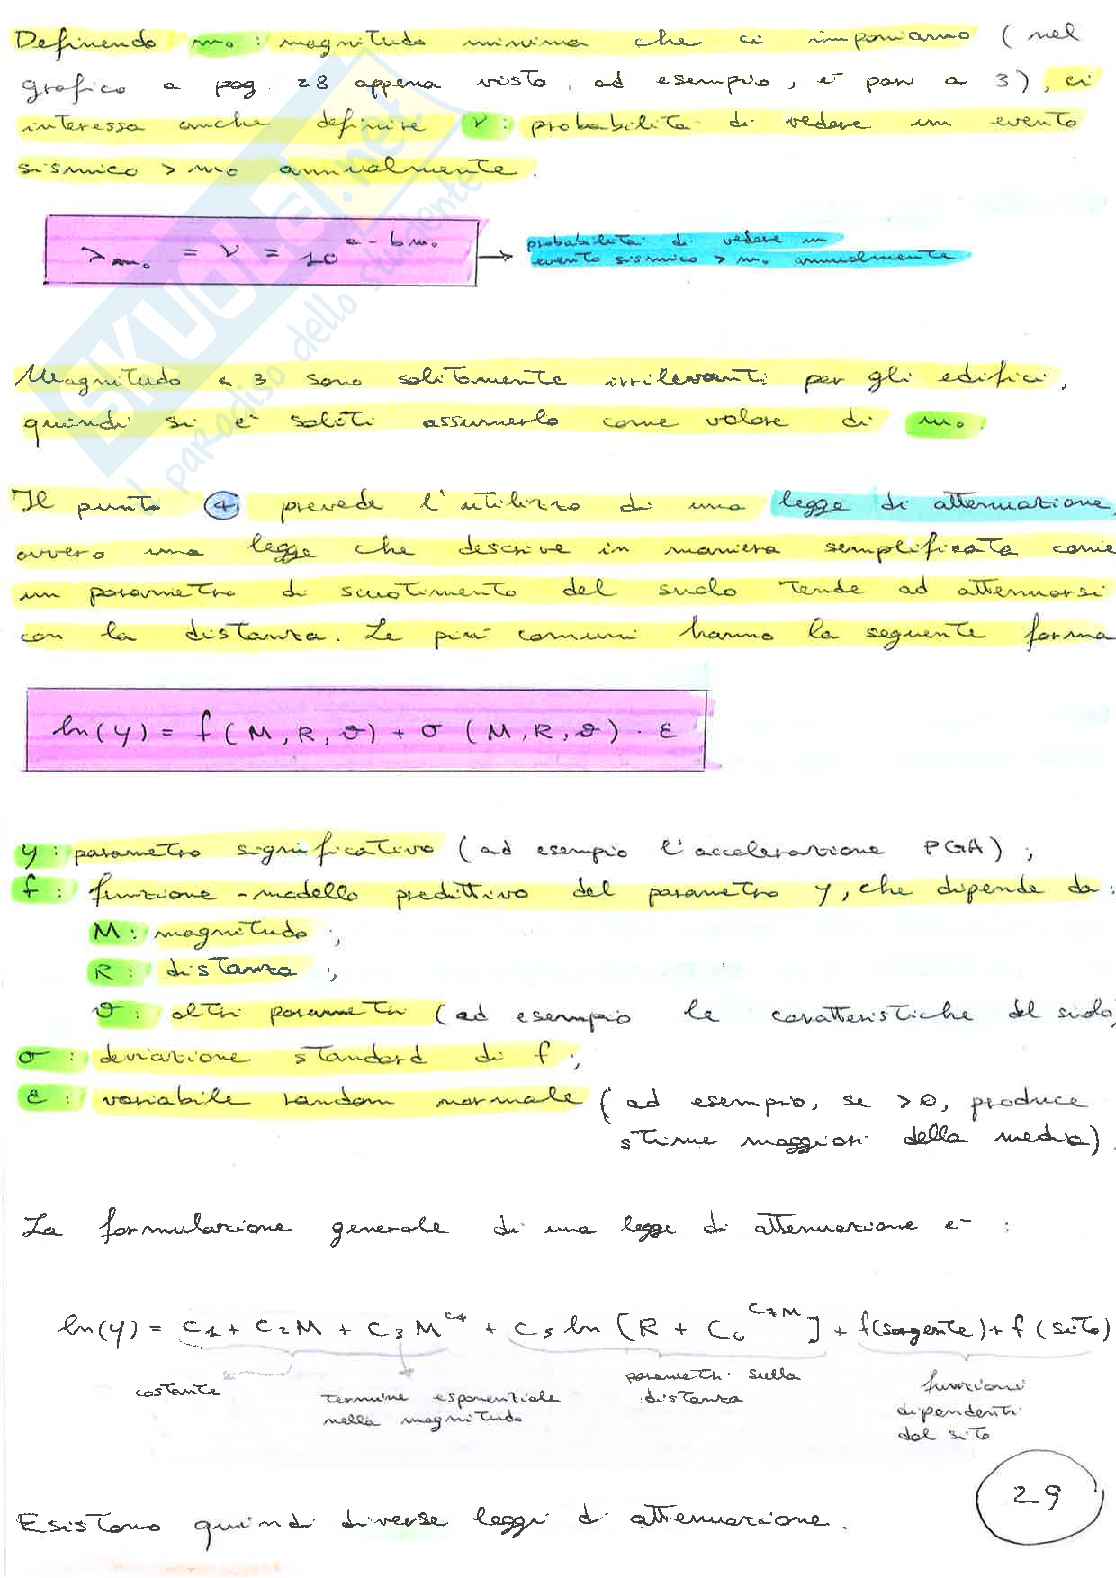 Definendo m₀: magnitudo minima che ci imponiamo (nel
grafico a pag. 28 appena visto, ad esempio, è pari a 3), ci
interessa anche definire ν: probabilità di vedere un evento
sismico > m₀ annualmente.
λm₀ = ν = 10^(a - b m₀) → probabilità di vedere un
evento sismico > m₀ annualmente
Magnitudo < 3 sono solitamente irrilevanti per gli edifici,
quindi si è soliti assumerlo come valore di m₀.
Il punto 4 prevede l'utilizzo di una legge di attenuazione,
ovvero una legge che descrive in maniera semplificata come
un parametro di scuotimento del suolo tende ad attenuarsi
con la distanza. Le più comuni hanno la seguente forma
ln(y) = f(M, R, ϑ) + σ (M, R, ϑ) · ε
y: parametro significativo (ad esempio l'accelerazione PGA);
f: funzione-modello predittivo del parametro y, che dipende da:
M: magnitudo;
R: distanza;
ϑ: altri parametri (ad esempio le caratteristiche del suolo)
σ: deviazione standard di f;
ε: variabile random normale (ad esempio, se > 0, produce
stime maggiori della media).
La formulazione generale di una legge di attenuazione è:
ln(y) = C₁ + C₂M + C₃M^C₄ + C₅ ln [R + C₆^(C₇M)] + f(sorgente) + f(sito)
costante
termine esponenziale
nella magnitudo
parametri sulla
distanza
funzioni
dipendenti
dal sito
29
Esistono quindi diverse leggi di attenuazione.
SKUOLA.net
il paradiso dello studente